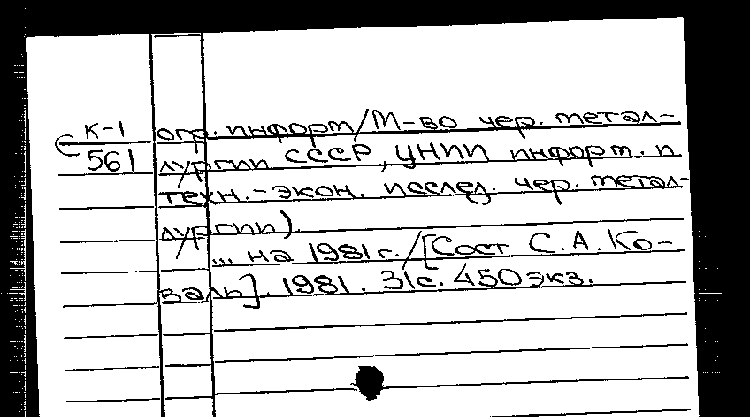 С К-1 561
огр. информ/М-во чер. метал-
лургии СССР, ЦНИИ информ. и
техн.-экон. исслед. чер. метал-
лургии).
... на 1981 г./[Сост С.А. Ко-
валь]. 1981. 31с. 450 экз.